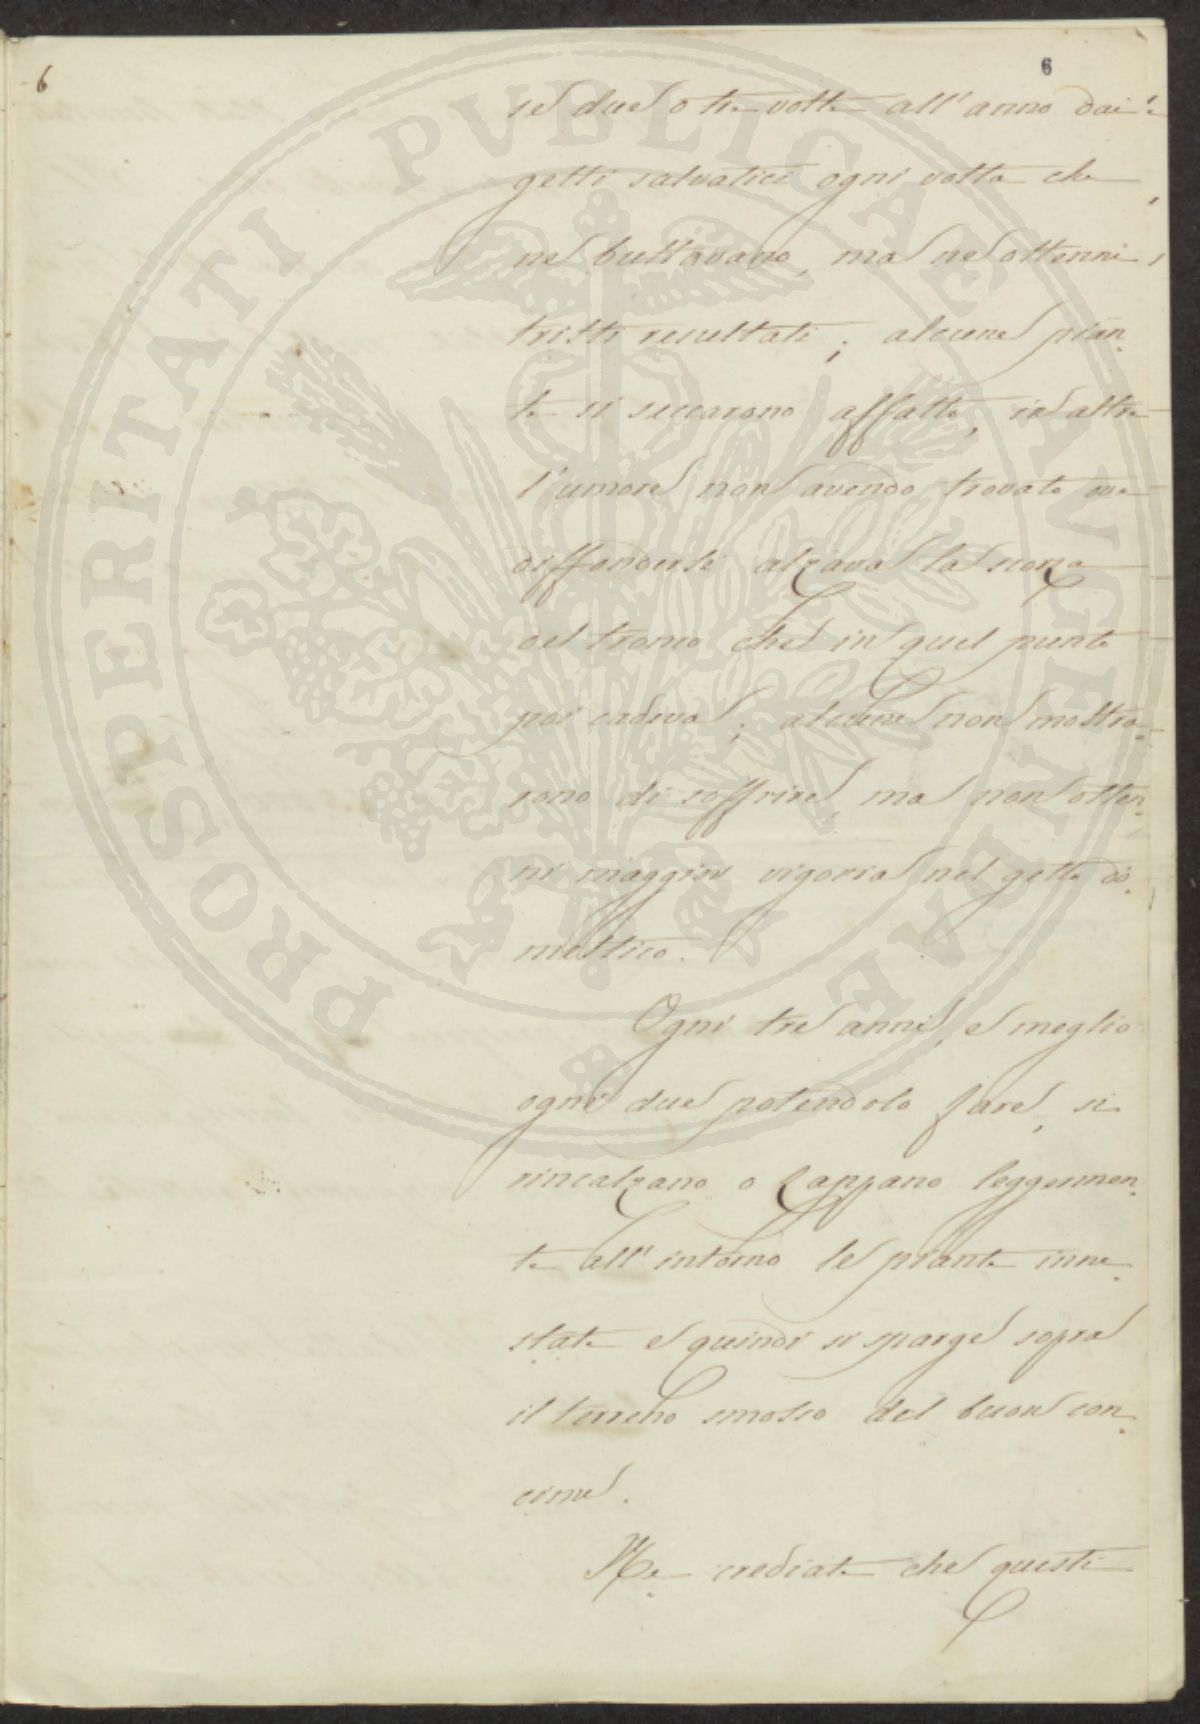 6
6
se due o tre volte all'anno dai
getti salvatici ogni volta che
ne buttavano, ma ne ottenni
tristi resultati; alcune pian-
te si seccarono affatto, in altre
l'umore non avendo trovato ove
diffondersi alzava la scorza
del tronco che in quel punto
poi cadeva; alcune non mostra-
rono di soffrire, ma non otten-
ni maggior vigoria nel getto do-
mestico.
Ogni tre anni, e meglio
ogni due potendolo fare, si
rincalzano o zappano leggermen-
te all'intorno le piante inne-
state e quindi si sparge sopra
il terreno smosso del buon con-
cime.
Ne crediate che questi
PROSPERITATI PUBLICAE AUGENDAE